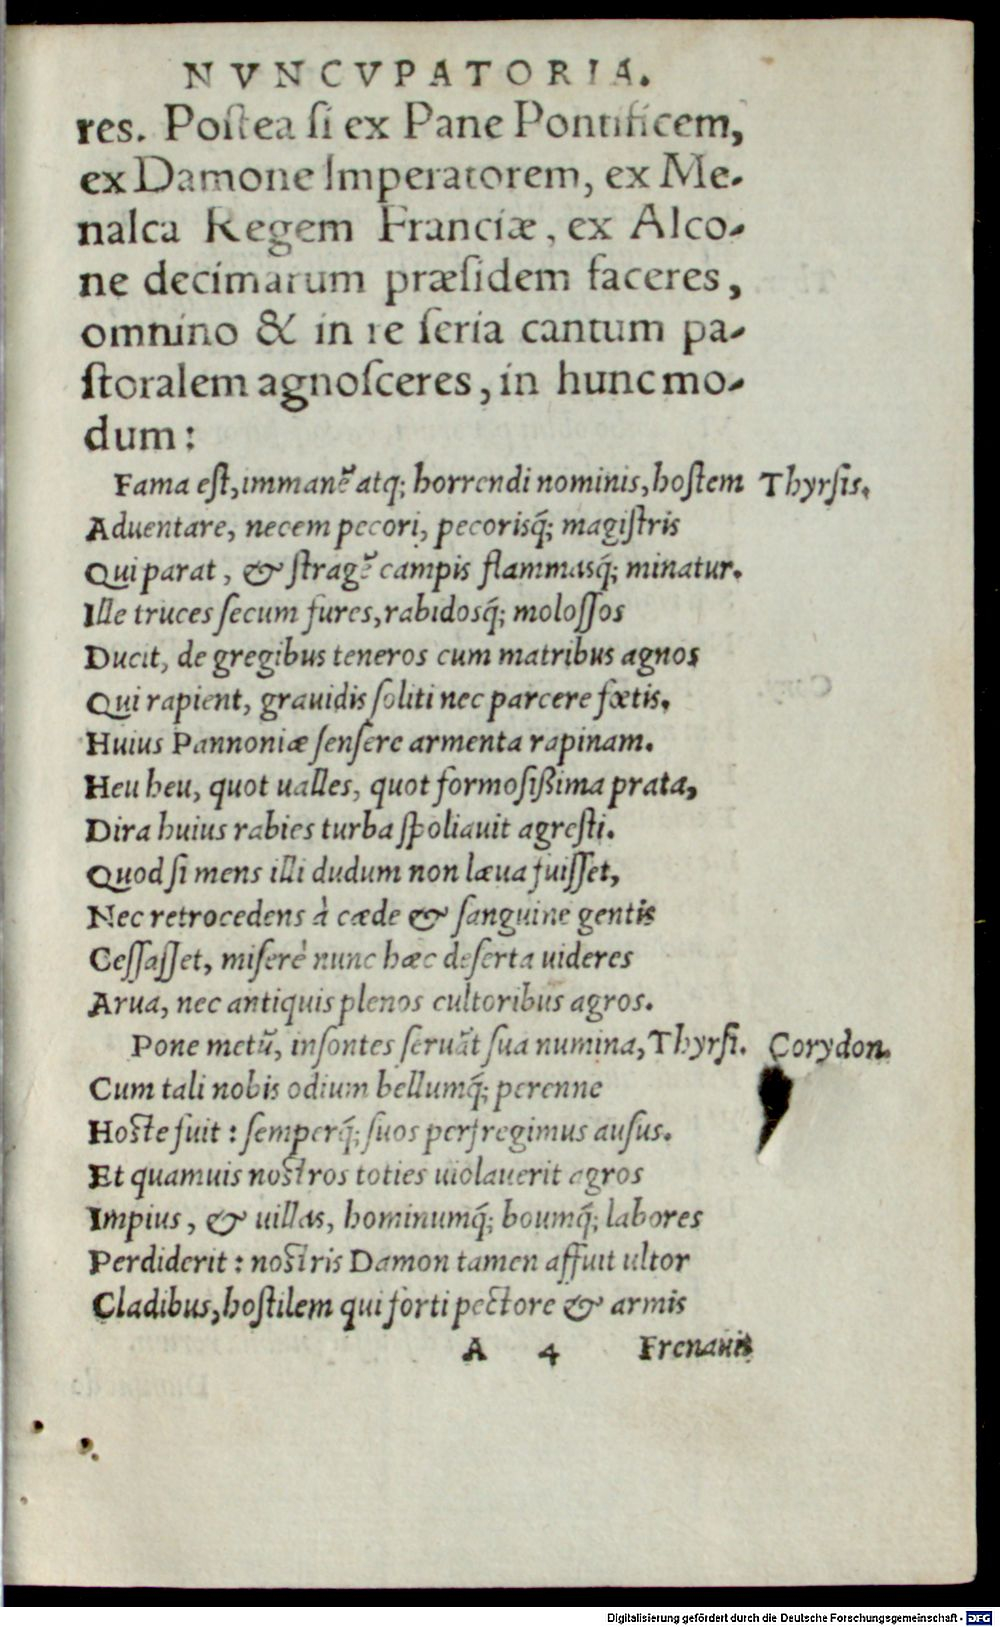 NVNCVPATORIA.
res. Poſtea ſi ex Pane Pontificem,
ex Damone Imperatorem, ex Me-
nalca Regem Franciæ, ex Alco-
ne decimarum præſidem faceres,
omnino & in re ſeria cantum pa-
ſtoralem agnoſceres, in hunc mo-
dum:
Fama eſt, immanẽ atq; horrendi nominis, hoſtem Thyrſis.
Aduentare, necem pecori, pecorisq́; magiſtris
Qui parat, & ſtragẽ campis flammasq́; minatur.
Ille truces ſecum fures, rabidosq́; moloſſos
Ducit, de gregibus teneros cum matribus agnos
Qui rapient, grauidis ſoliti nec parcere fœtis.
Huius Pannoniæ ſenſere armenta rapinam.
Heu heu, quot ualles, quot formoſißima prata,
Dira huius rabies turba ſpoliauit agreſti.
Quod ſi mens illi dudum non læua fuiſſet,
Nec retrocedens à cæde & ſanguine gentis
Ceſſaſſet, miſerè nunc hæc deſerta uideres
Arua, nec antiquis plenos cultoribus agros.
Pone metũ, inſontes ſeruãt ſua numina, Thyrſi. Corydon.
Cum tali nobis odium bellumq́; perenne
Hoſte fuit: ſemperq́; ſuos perfregimus auſus.
Et quamuis noſtros toties uiolauerit agros
Impius, & uillas, hominumq́; boumq́; labores
Perdiderit: noſtris Damon tamen affuit ultor
Cladibus, hoſtilem qui forti pectore & armis
A 4 Frenauit
Digitalisierung gefördert durch die Deutsche Forschungsgemeinschaft - DFG